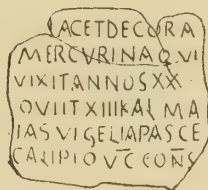 IACET DECORA
MERCVRINA QVI
VIXIT ANNOS XX
OVIIT XIII KAL MA
IAS VIGELIA PASCE
CALIPIO VC CONS